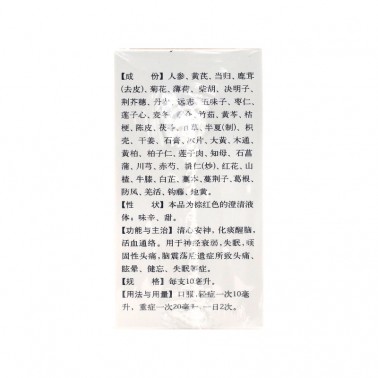 【成 份】人参、黄芪、当归、鹿茸
(去皮)、菊花、薄荷、柴胡、决明子、
荆芥穗、丹参、远志、五味子、枣仁、
莲子心、麦冬、百合、竹茹、黄芩、桔
梗、陈皮、茯苓、甘草、半夏(制)、枳
壳、干姜、石膏、冰片、大黄、木通、
黄柏、柏子仁、莲子肉、知母、石菖
蒲、川芎、赤芍、桃仁(炒)、红花、山
楂、牛膝、白芷、藁本、蔓荆子、葛根、
防风、羌活、钩藤、地黄。
【性 状】本品为棕红色的澄清液
体；味辛、甜。
【功能与主治】清心安神，化痰醒脑，
活血通络。用于神经衰弱，失眠，顽
固性头痛，脑震荡后遗症所致头痛、
眩晕、健忘、失眠等症。
【规 格】每支10毫升。
【用法与用量】口服，轻症一次10毫
升，重症一次20毫升，一日2次。